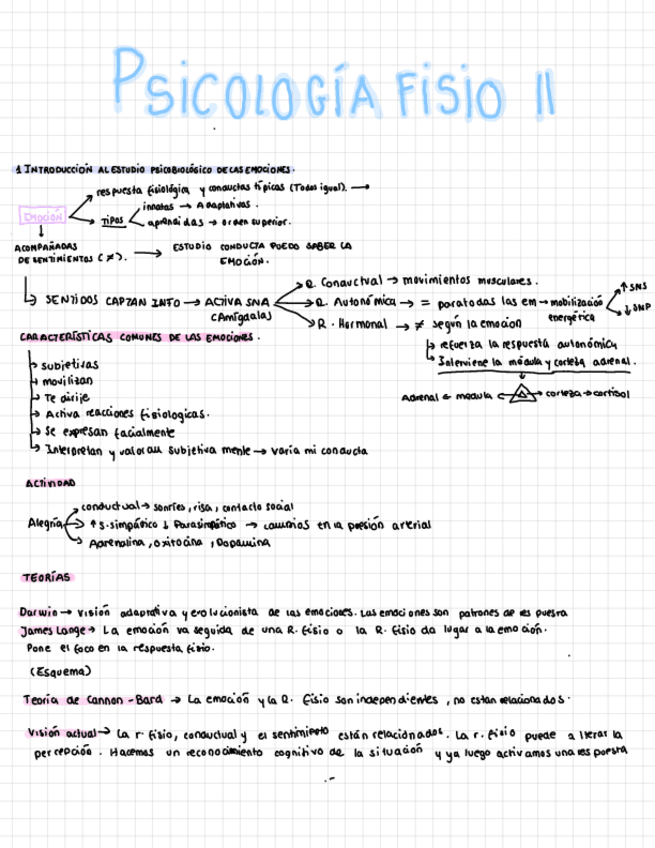 PSICOLOGÍA FISIO II
1 INTRODUCCIÓN AL ESTUDIO PSICOBIOLÓGICO DE LAS EMOCIONES.
respuesta fisiológica y conductas típicas (Todos igual). →
EMOCIÓN
TIPOS
innatas → Adaptativas.
aprendidas → orden superior.
ACOMPAÑADAS
DE SENTIMIENTOS (≠). → ESTUDIO CONDUCTA PUEDO SABER LA
EMOCIÓN.
SENTIDOS CAPTAN INFO → ACTIVA SNA
(Amígdalas)
R. Conductual → movimientos musculares.
R. Autonómica → = para todas las em → mobilización
energética
↑ SNS
↓ SNP
R. Hormonal → ≠ según la emoción
refuerza la respuesta autonómica
Interviene la médula y corteza adrenal.
Adrenal ← medula ← → corteza → cortisol
CARACTERÍSTICAS COMUNES DE LAS EMOCIONES.
subjetivas
movilizan
Te dirije
Activa reacciones fisiologicas.
Se expresan facialmente
Interpretan y valoran subjetiva mente → varía mi conducta
ACTIVIDAD
Alegría
conductual → sonríes, risa, contacto social
↑ s.simpático ↓ Parasimpático → cambios en la presión arterial
Adrenalina, oxitocina, Dopamina
TEORÍAS
Darwin → visión adaptativa y evolucionista de las emociones. Las emociones son patrones de respuesta
James Lange → La emoción va seguida de una R. fisio o la R. fisio da lugar a la emoción.
Pone el foco en la respuesta fisio.
(Esquema)
Teoría de Cannon-Bard → La emoción y la R. fisio son independientes, no están relacionados.
Visión actual → La r. fisio, conductual y el sentimiento están relacionados. La r. fisio puede alterar la
percepción. Hacemos un reconocimiento cognitivo de la situación y ya luego activamos una respuesta